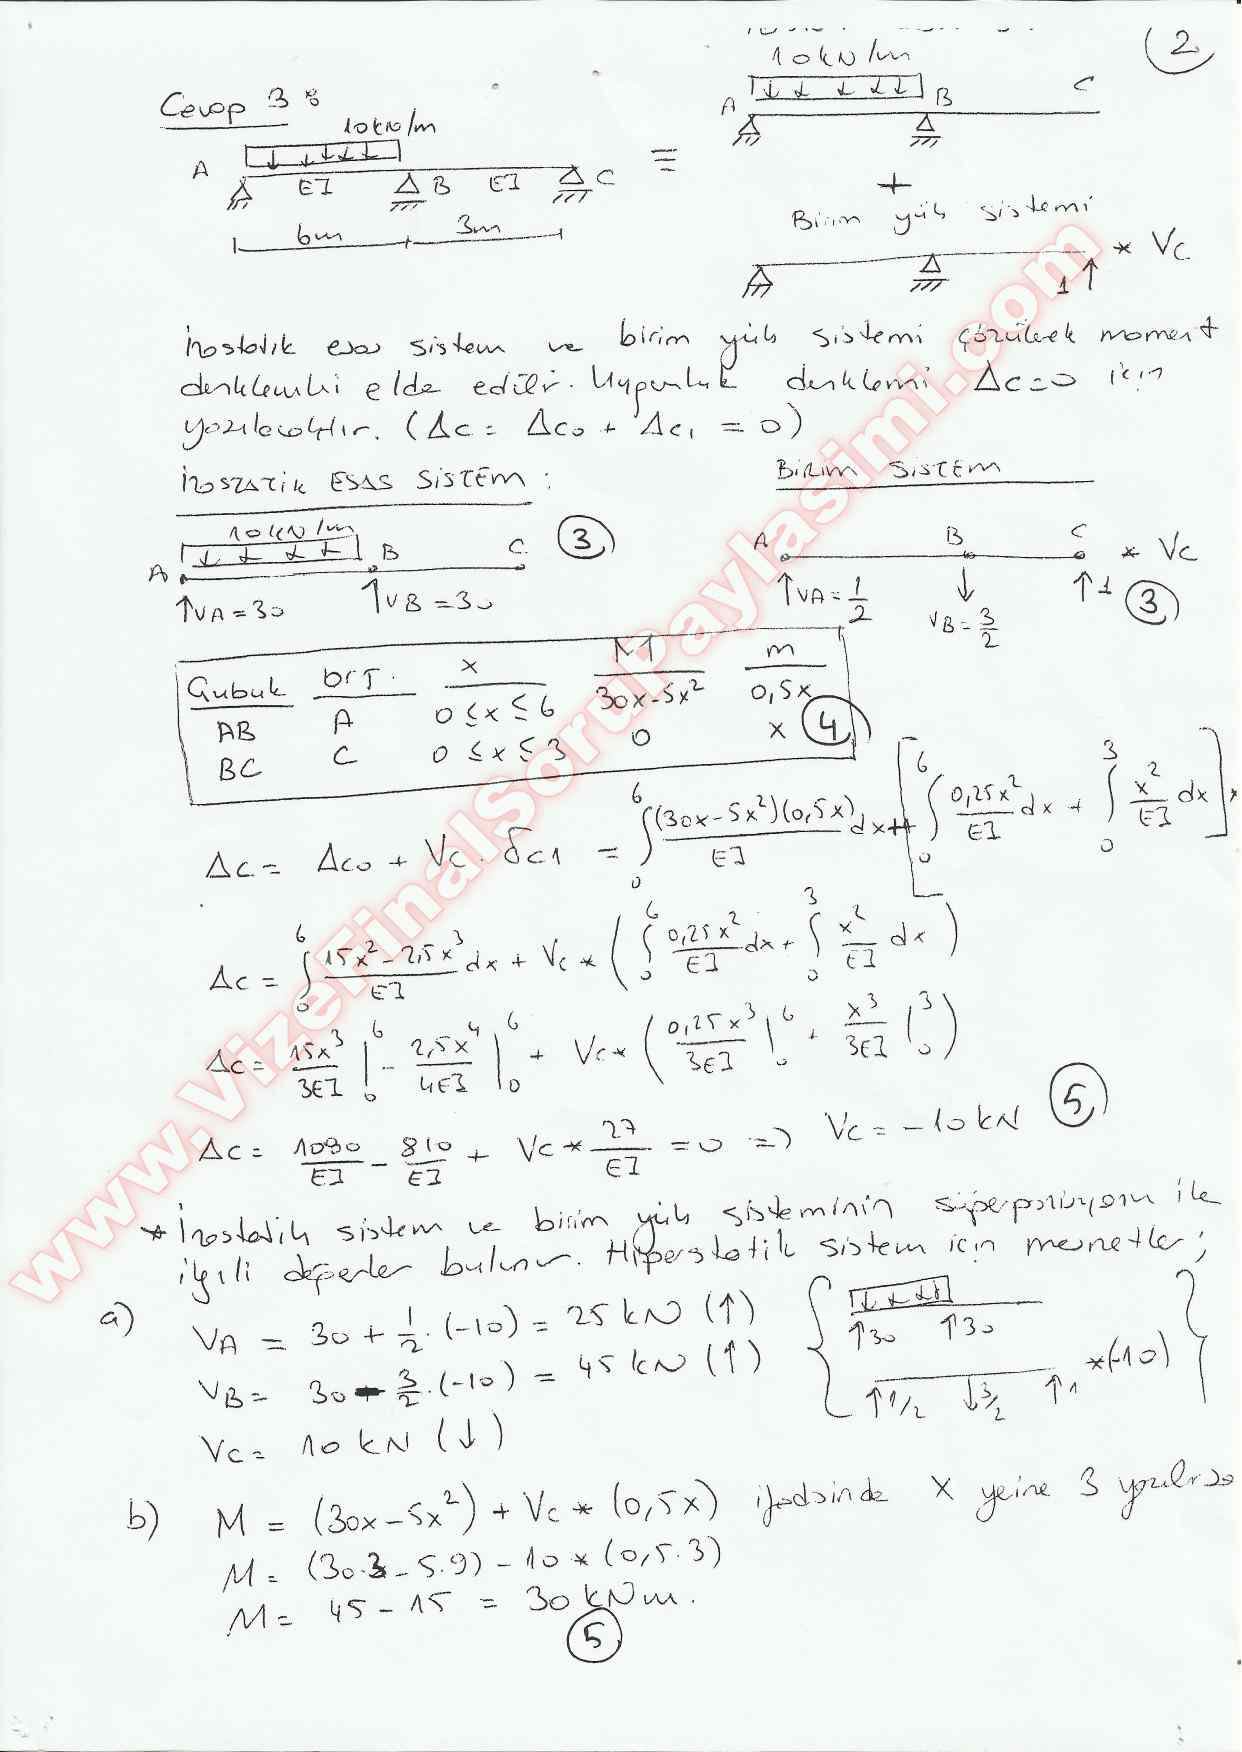 2
Cevap 3:
10kN/m
A EI B EI C
6m 3m
≡
10kN/m
A B C
+
Birim yük sistemi
1 * Vc
İzostatik esas sistem ve birim yük sistemi çözülerek moment
denklemleri elde edilir. Uygunluk denklemi Δc=0 için
yazılacaktır. (Δc = Δc0 + Δc1 = 0)
İZOSTATİK ESAS SİSTEM :
BİRİM SİSTEM
10kN/m
A B C 3
↑VA=30 ↑VB=30
A B C * Vc
↑VA=1/2 ↓ VB=3/2 ↑1 3
Çubuk ORT. x M m
AB A 0≤x≤6 30x-5x² 0,5x
BC C 0≤x≤3 0 x 4
Δc = Δc0 + Vc.δc1 = ∫₀⁶ (30x-5x²)(0,5x)/EI dx + [∫₀⁶ 0,25x²/EI dx + ∫₀³ x²/EI dx] *
Δc = ∫₀⁶ 15x²-2,5x³/EI dx + Vc * (∫₀⁶ 0,25x²/EI dx + ∫₀³ x²/EI dx)
Δc = 15x³/3EI |₀⁶ - 2,5x⁴/4EI |₀⁶ + Vc * (0,25x³/3EI |₀⁶ + x³/3EI |₀³)
Δc = 1080/EI - 810/EI + Vc * 27/EI = 0 => Vc = -10kN 5
* İzostatik sistem ve birim yük sisteminin süperpozisyonu ile
ilgili değerler bulunur. Hiperstatik sistem için mesnetler;
a) VA = 30 + 1/2.(-10) = 25 kN (↑)
VB = 30 - 3/2.(-10) = 45 kN (↑)
Vc = 10 kN (↓)
↑30 ↑30
↑1/2 ↓3/2 ↑1 *(-10)
b) M = (30x-5x²) + Vc * (0,5x) ifadesinde x yerine 3 yazılırsa
M = (30.3-5.9) - 10 * (0,5.3)
M = 45 - 15 = 30 kNm.
5
www.VizeFinalSoruPaylasimi.com